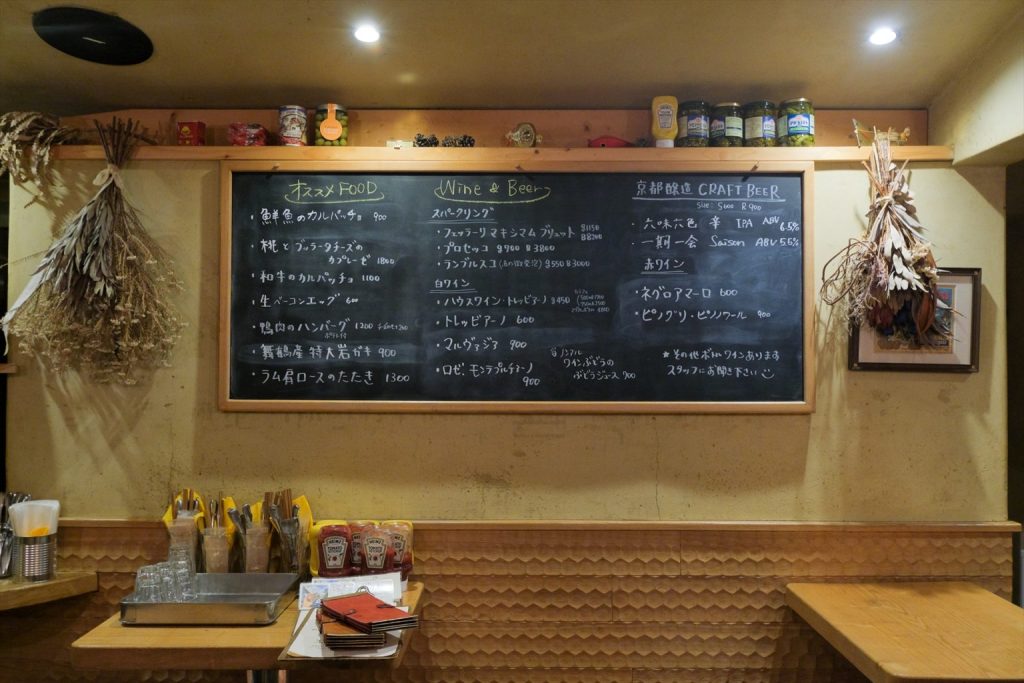 オススメ FOOD
・鮮魚のカルパッチョ 900
・桃とブッラータチーズの
カプレーゼ 1800
・和牛のカルパッチョ 1100
・生ベーコンエッグ 600
・鴨肉のハンバーグ 1200
・舞鶴産 特大岩ガキ 900
・ラム肩ロースのたたき 1300
Wine & Beer
スパークリング
・フェッラーリ マキシマム ブリュット G1150
B8200
・プロセッコ G700 B3800
・ランブルスコ G550 B3000
白ワイン
・ハウスワイン・トレッビアーノ G450
・トレッビアーノ 600
・マルヴァジア 900
・ロゼ: モンテプルチアーノ
900
ノンアル
ワインぶどうの
ぶどうジュース 700
京都醸造 CRAFT BEER
・六味六色 辛 IPA ABV 6.5%
・一期一会 Saison ABV 5.5%
赤ワイン
・ネグロアマーロ 600
・ピノグリ・ピノノワール 900
★その他ボトルワインあります
スタッフにお聞き下さい
HEINZ
TOMATO
HEINZ